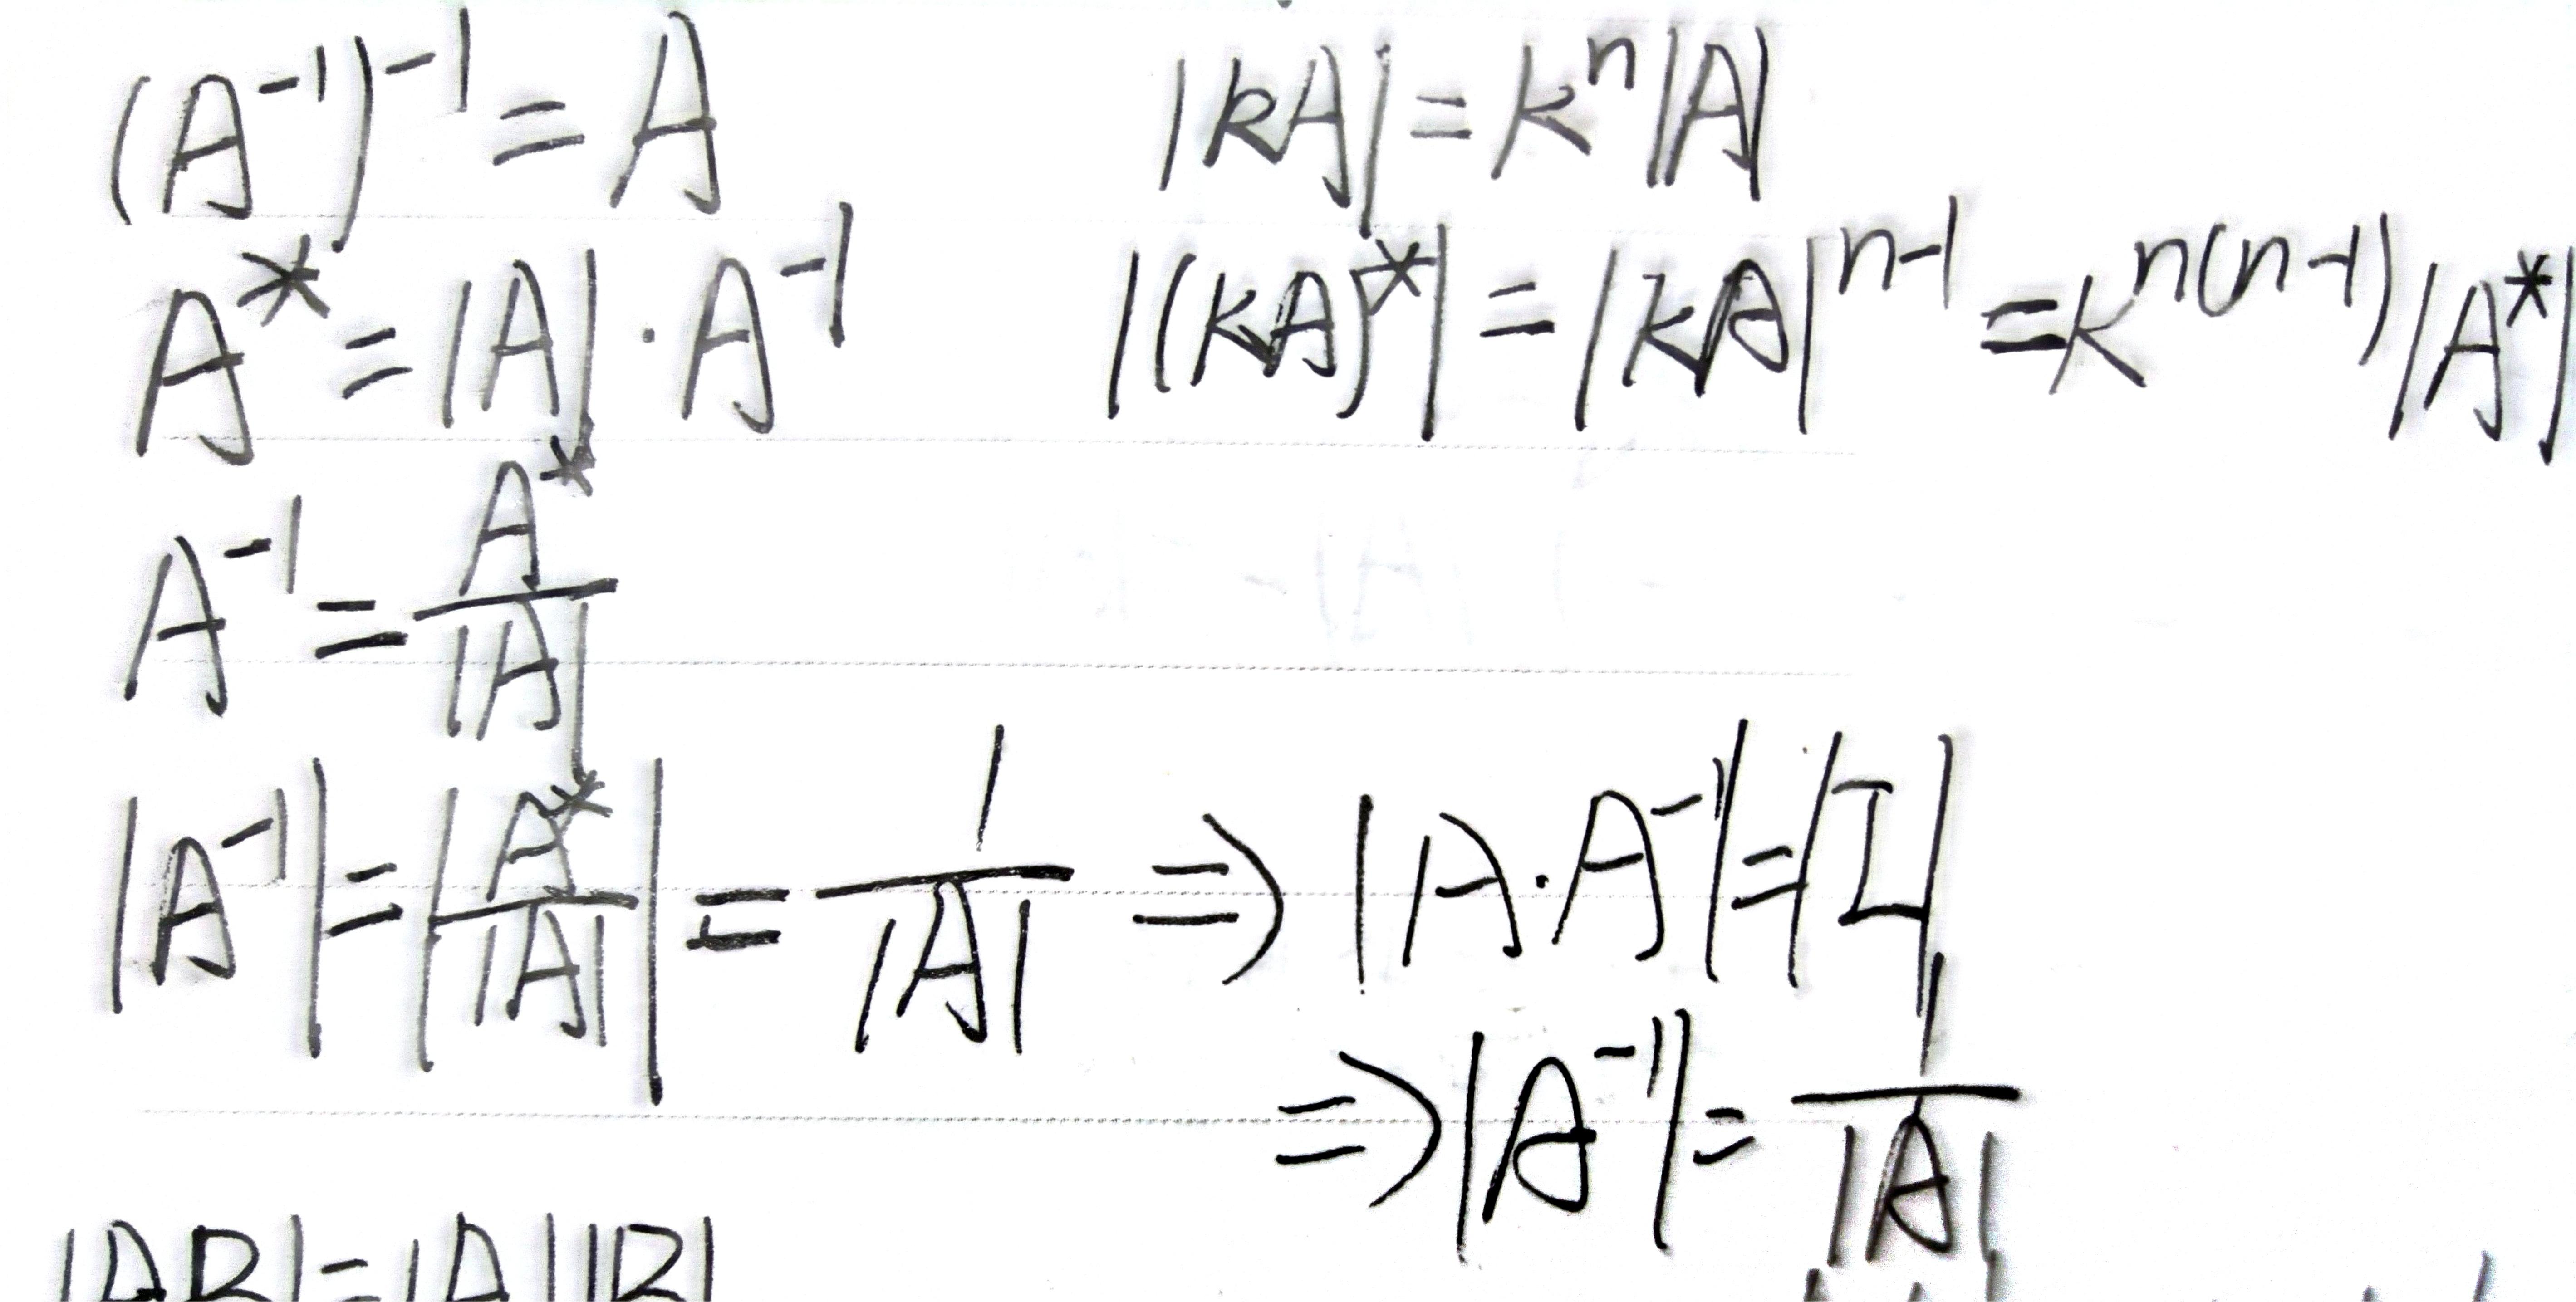 (A⁻¹)⁻¹ = A
|kA| = kⁿ|A|
A* = |A| · A⁻¹
|(kA)*| = |kA|ⁿ⁻¹ = kⁿ⁽ⁿ⁻¹⁾|A*|
A⁻¹ = A*/|A|
|A⁻¹| = |A*/|A|| = 1/|A| ⇒ |A · A⁻¹| = |I|
⇒ |A⁻¹| = 1/|A|
|AB| = |A||B|